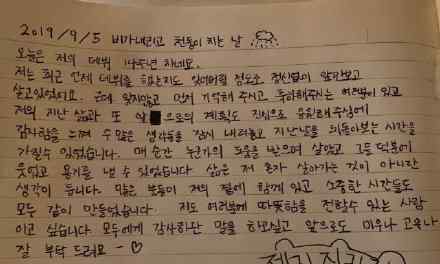 2019/9/5 비가내리고 천둥이 치는 날
오늘은 저의 데뷔 14주년 이네요.
저는 최근 언제 데뷔를 했는지도 잊어버릴 정도로 정신없이 앞만보고
살고있었어요. 근데 잊지않고 먼저 기억해 주시고 축하해주시는 여러분이 있고
저의 지난 삶과 또 앞으로의 계획도 진심으로 응원해주심에
감사함을 느껴 수많은 생각들을 잠시 내려놓고 지난날을 되돌아보는 시간을
가질수 있었습니다. 매 순간 누군가의 도움을 받으며 살았고 그들 덕분에
웃었고 용기를 낼 수 있었습니다. 삶은 저 혼자 살아가는 것이 아니란
생각이 듭니다. 많은 분들이 저의 곁에 함께 있고 소중한 시간들도
모두 같이 만들었습니다. 저도 여러분께 따뜻함을 전할수 있는 사람
이고 싶습니다. 모두에게 감사하단 말을 하고싶고 앞으로도 미우나 고우나
잘 부탁 드려요 - ♡